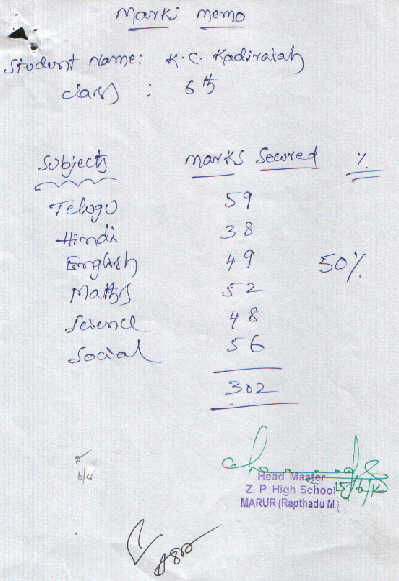 Marks Memo
Student Name: K. C. Kadiraiah
Class : 6th
Subjects Marks Secured %
Telugu 59
Hindi 38
English 49 50%
Maths 52
Science 48
Social 56
302
Head Master
Z. P. High School
MARUR (Rapthadu M)